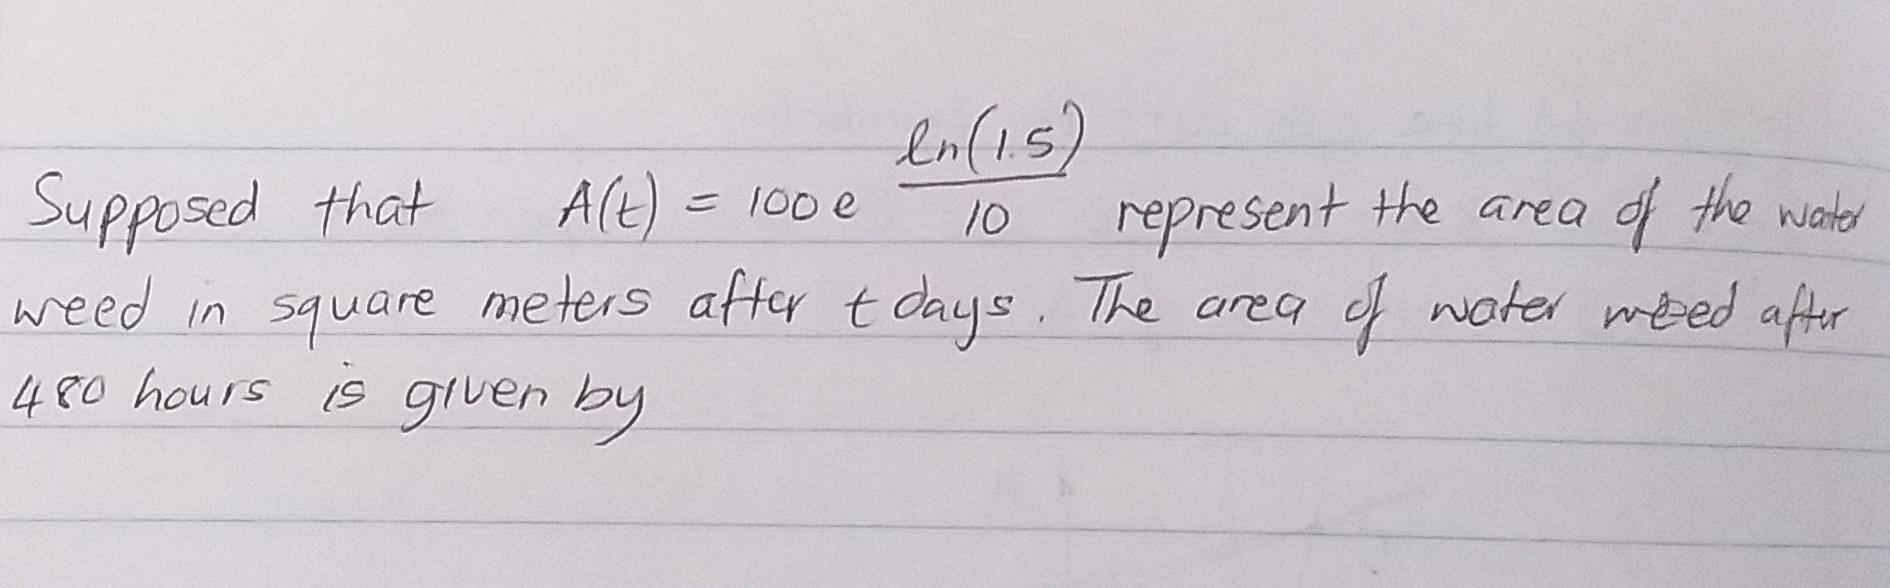 Supposed that A(t) = 100 e ln(1.5)/10 represent the area of the water
weed in square meters after t days. The area of water weed after
480 hours is given by